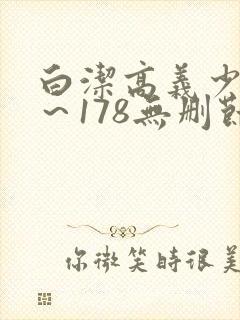 白潔高義少
～178無刪節
你微笑時很美